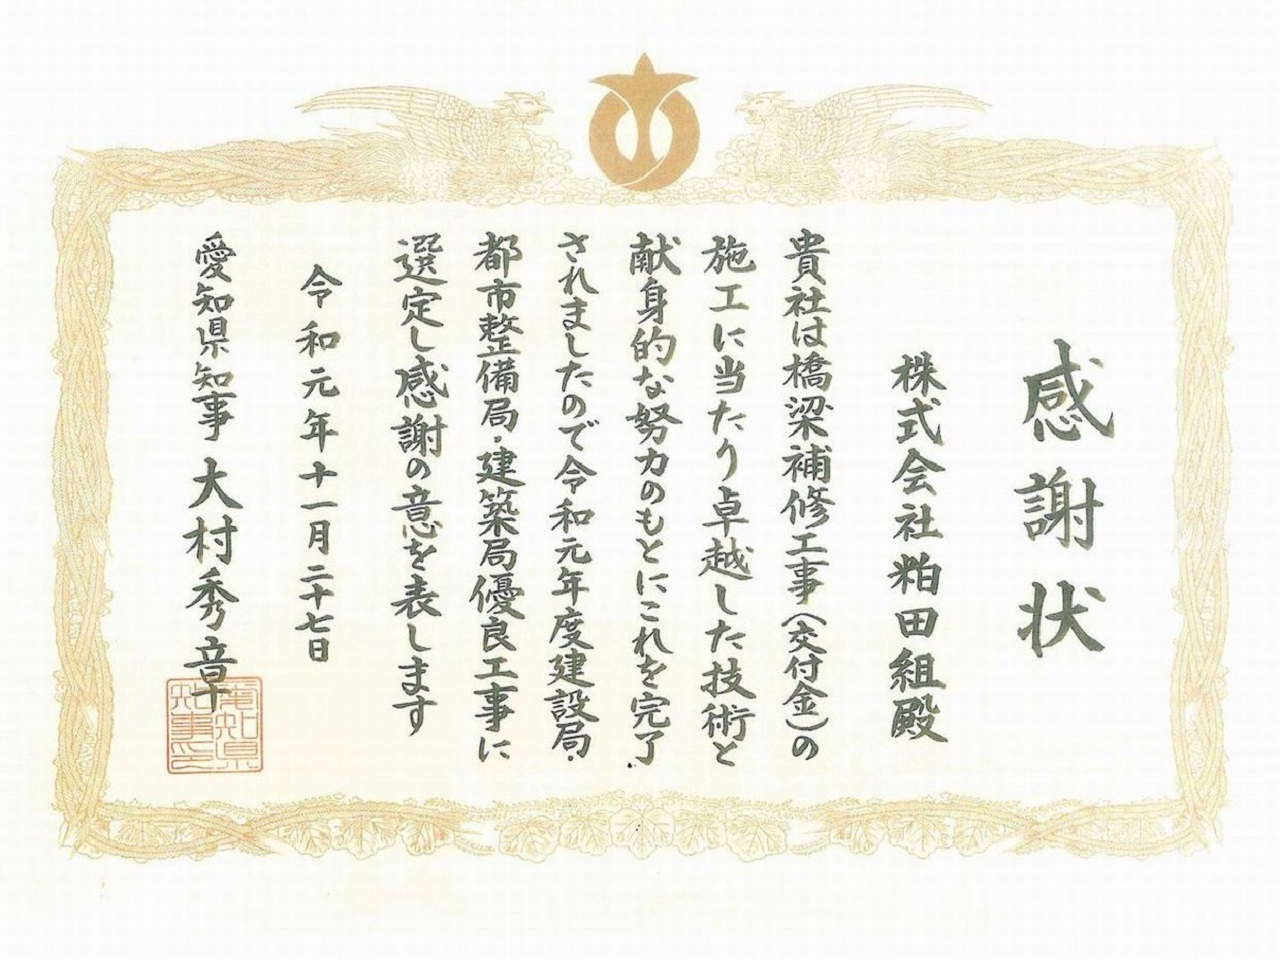 感謝状
株式会社粕田組殿
貴社は橋梁補修工事(交付金)の
施工に当たり卓越した技術と
献身的な努力のもとにこれを完了
されましたので令和元年度建設局・
都市整備局・建築局優良工事に
選定し感謝の意を表します
令和元年十一月二十七日
愛知県知事 大村秀章
愛知県
知事印